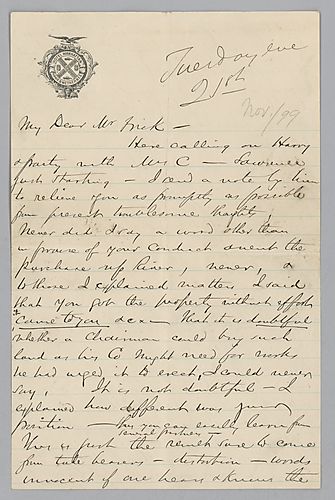 Tuesday eve
21st
Nov/99
My Dear Mr Frick —
Here calling on Harry
& party with Mrs C — Lawrence
just starting — I send a note by him
to relieve you as promptly as possible
from present troublesome
Never did I say a word other than
in praise of your conduct anent the
purchase up River, never,
to whom I explained matters I said
that you got the property without effort
it came to you &c — that it is doubtful
whether a Chairman could buy such
land as his Co might need for works
he had urged it to erect, I could never
say, It is not doubtful — I
explained how different was your
position — this you can easily learn from
several parties —
This is just the result sure to come
from tale bearers — distortion — words
innocent of one hears & knows the